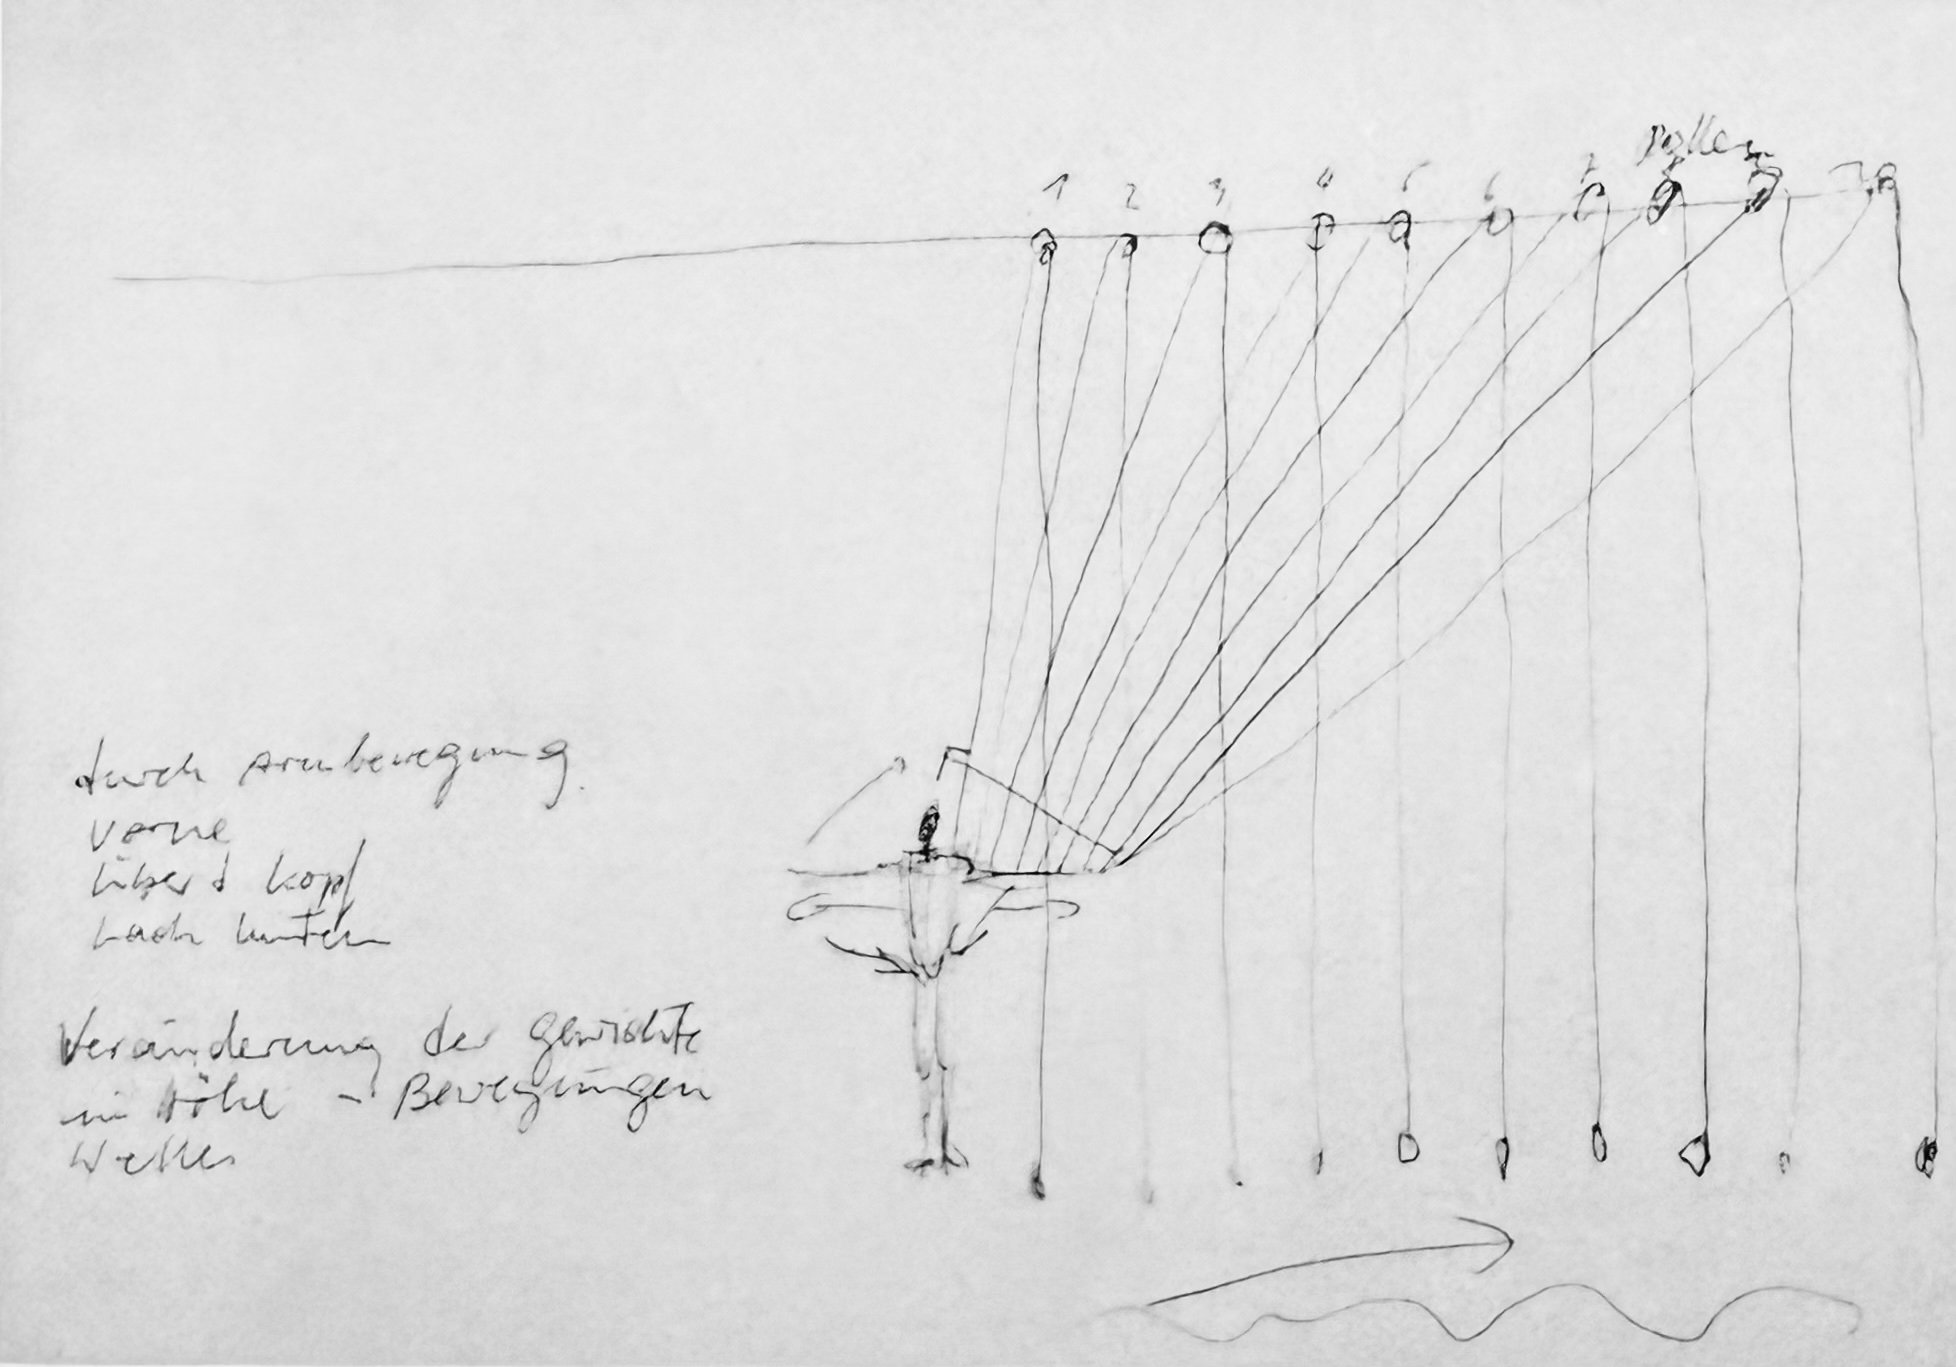 Rollen
1 2 3 4 5 6 7
durch Armbewegung.
vorne
über d Kopf
nach hinten
Veränderung der Gewichte
in Höhe - Bewegungen
Wellen